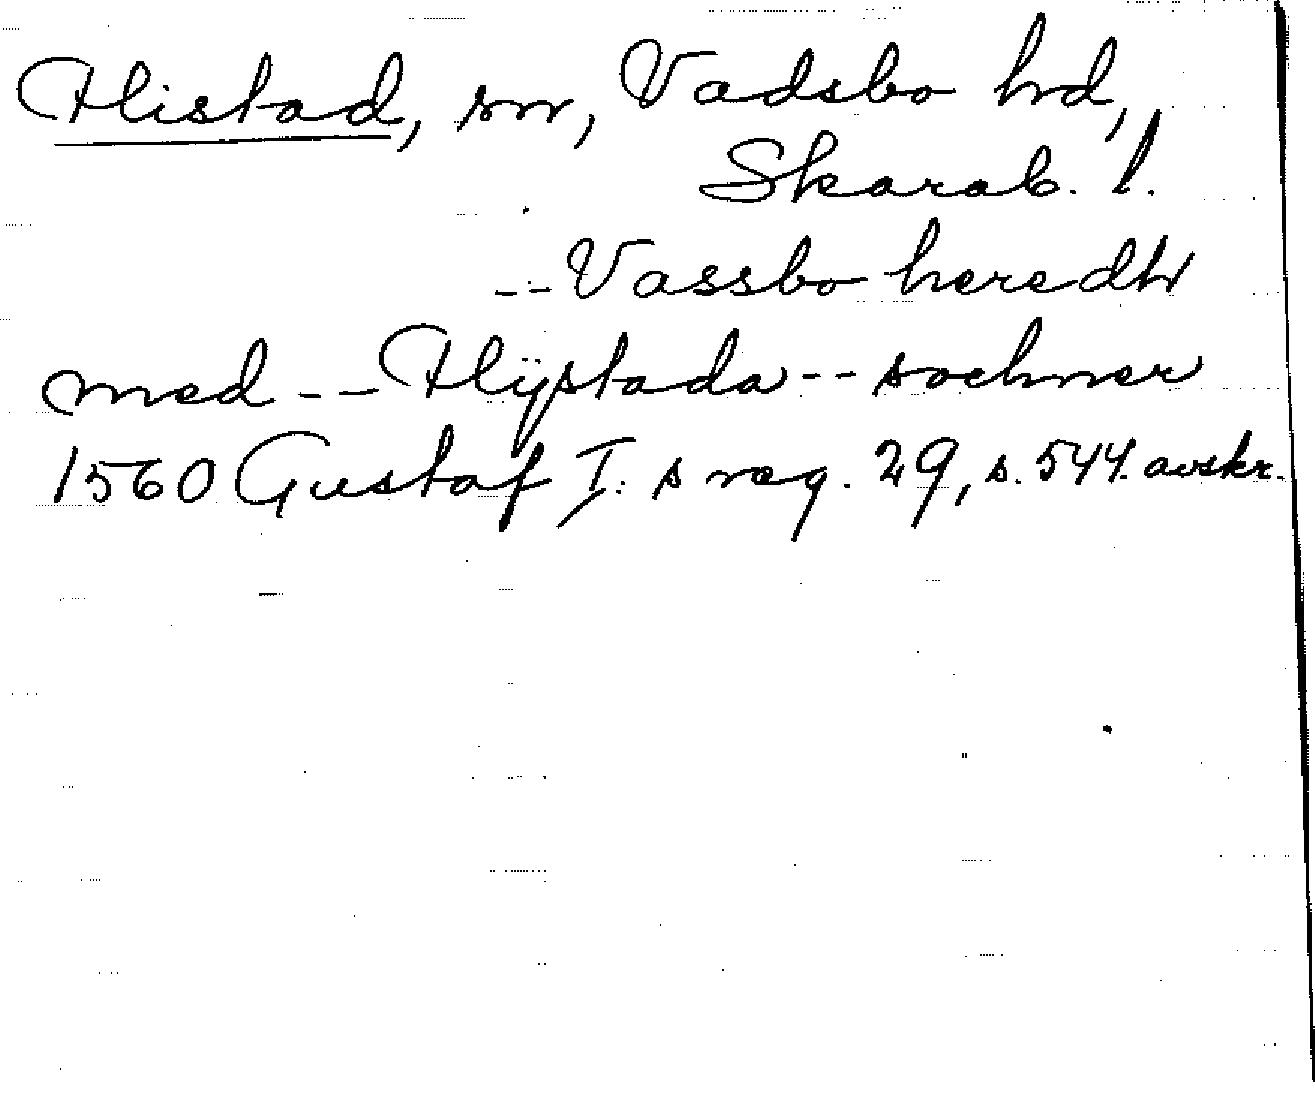 Flistad, sn, Vadsbo hd,
Skarab. l.
-- Vassbo heredh
med -- Flÿstada -- sochner
1560 Gustaf I:s reg. 29, s. 544. avskr.